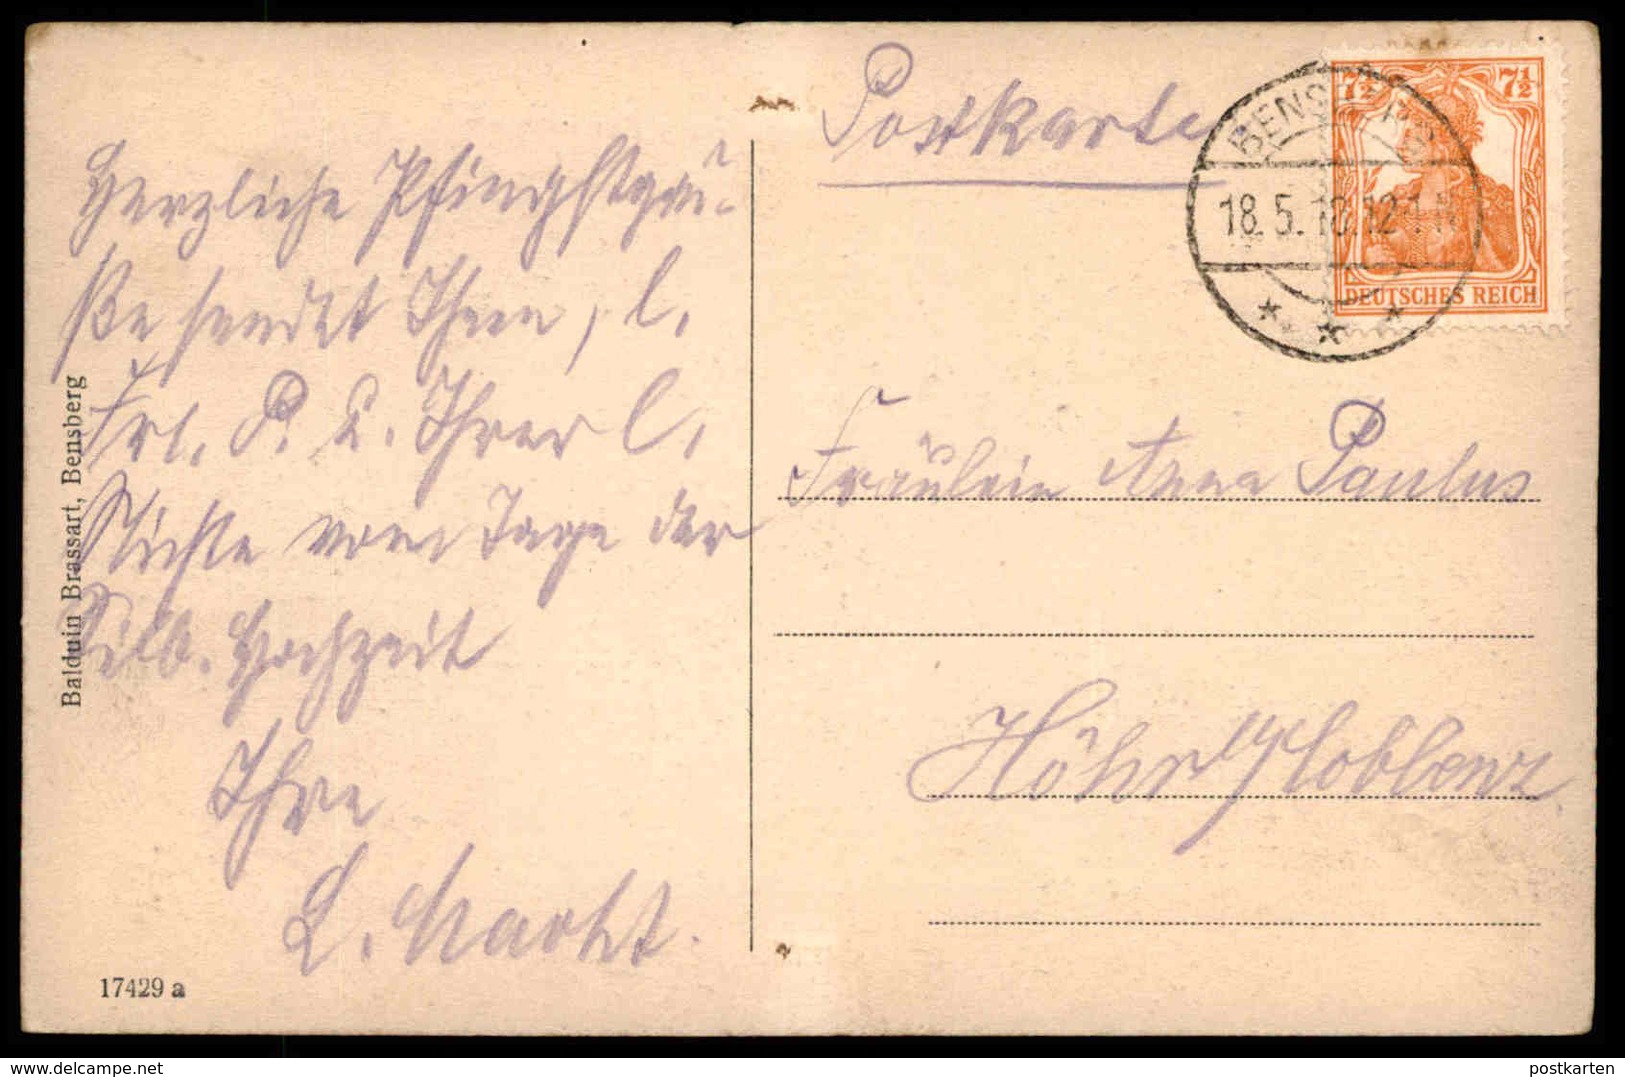 Postkarte
BENSBERG
18.5.18.12-1 N
7½ 7½
DEUTSCHES REICH
Herzliche Pfingstgrü-
ße sendet Ihnen, l.
Frl. P. u. Ihrer l.
Nichte vom Tage der
Silb. Hochzeit
Ihre
L. Macht.
Fräulein Anna Paulus
Höhr / Coblenz
Balduin Brassart, Bensberg
17429 a
www.delcampe.net
postkarten